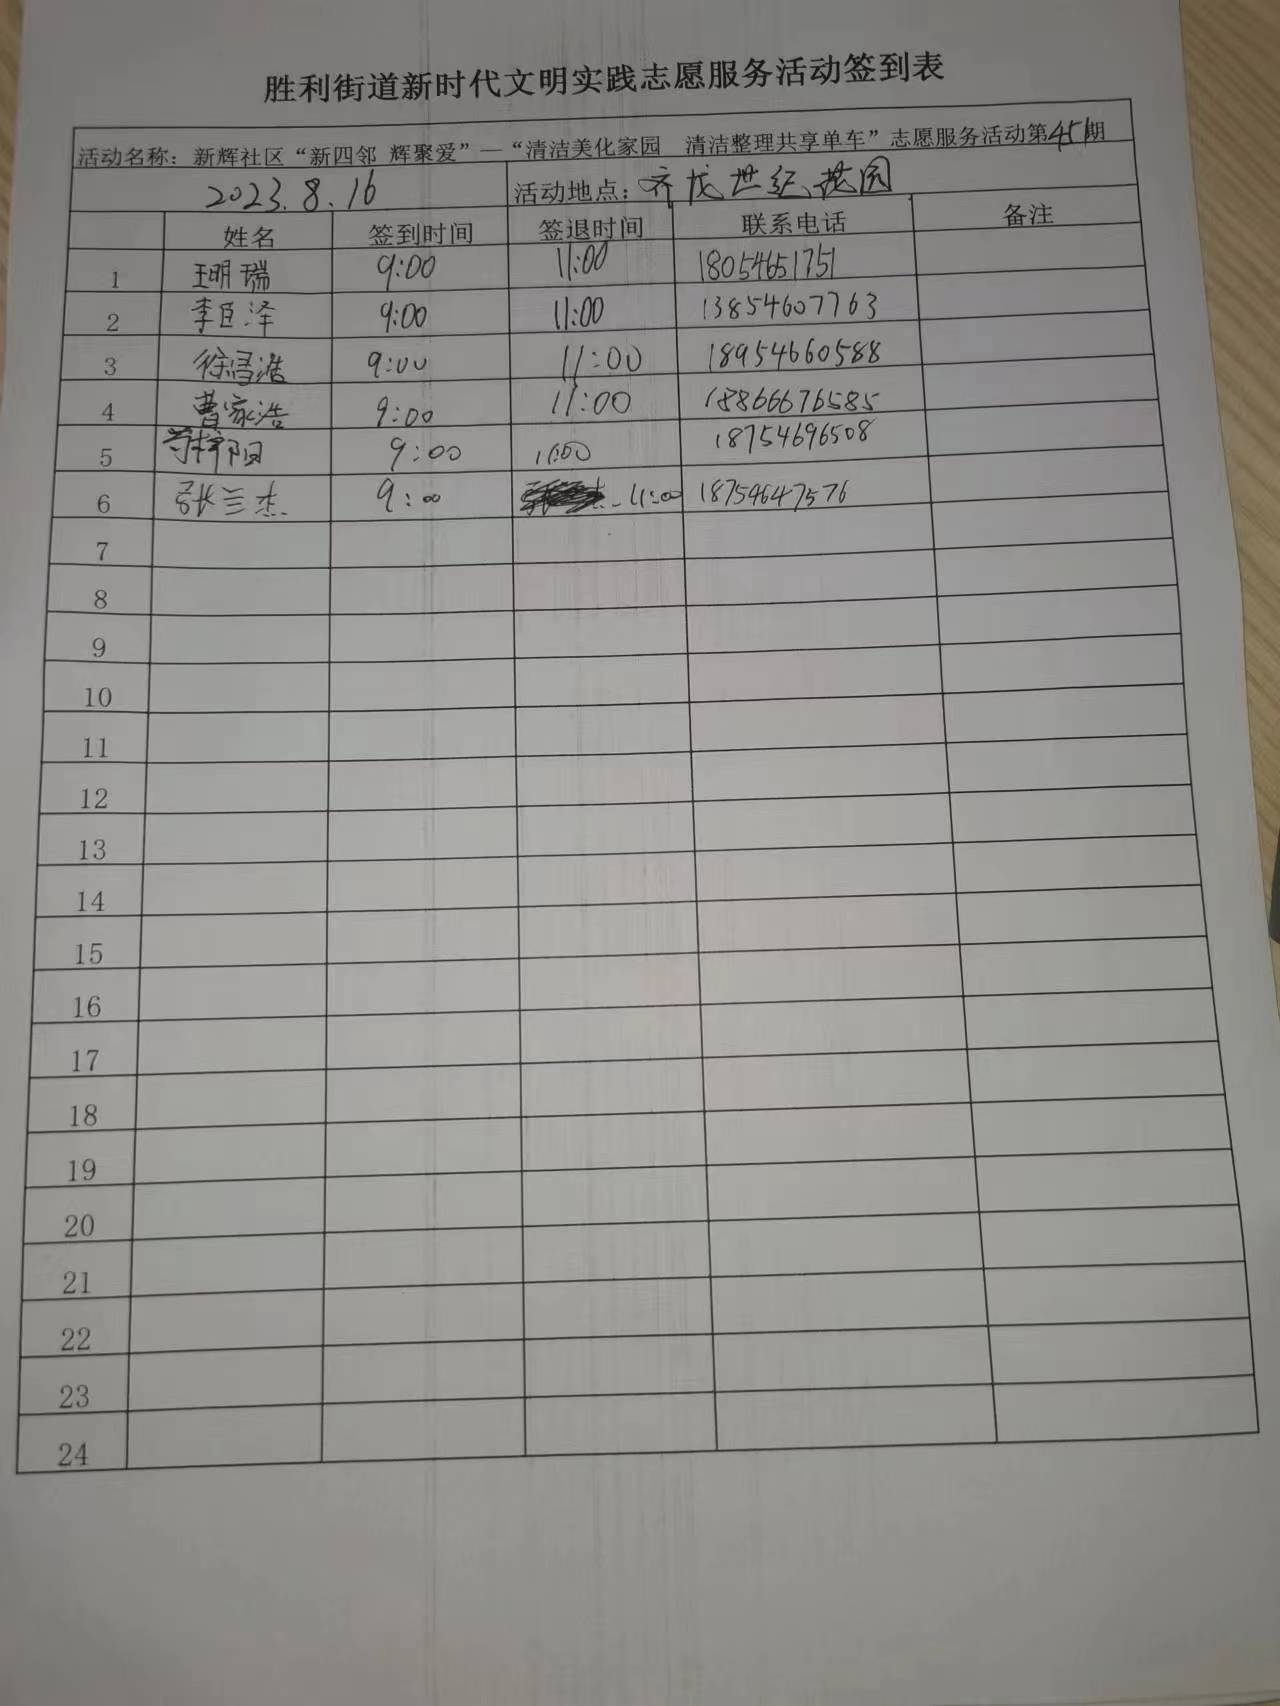 胜利街道新时代文明实践志愿服务活动签到表
活动名称：新辉社区“新四邻 辉聚爱”—“清洁美化家园 清洁整理共享单车”志愿服务活动第451期
2023.8.16 活动地点：齐龙世纪花园
姓名 签到时间 签退时间 联系电话 备注
1 王明瑞 9:00 11:00 18054651751
2 李臣泽 9:00 11:00 13854607763
3 徐浩 9:00 11:00 18954660588
4 曹家浩 9:00 11:00 18866676585
5 梓阳 9:00 11:00 18754696508
6 张兰杰 9:00 11:00 18754647576
7
8
9
10
11
12
13
14
15
16
17
18
19
20
21
22
23
24